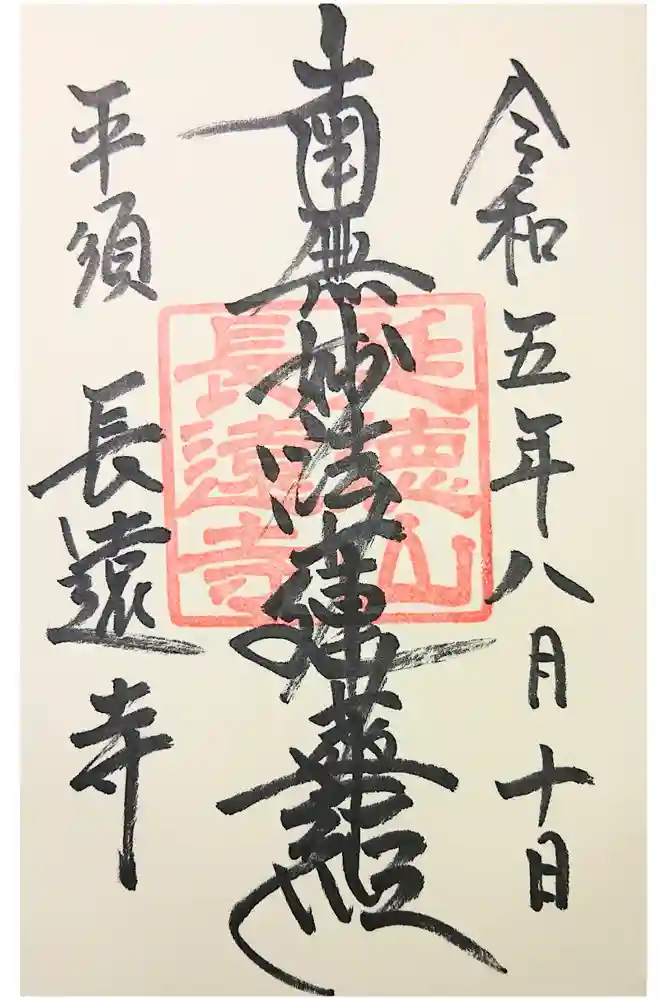 令和五年八月十日
南無妙法蓮華経
延徳山
長遠寺
平須 長遠寺